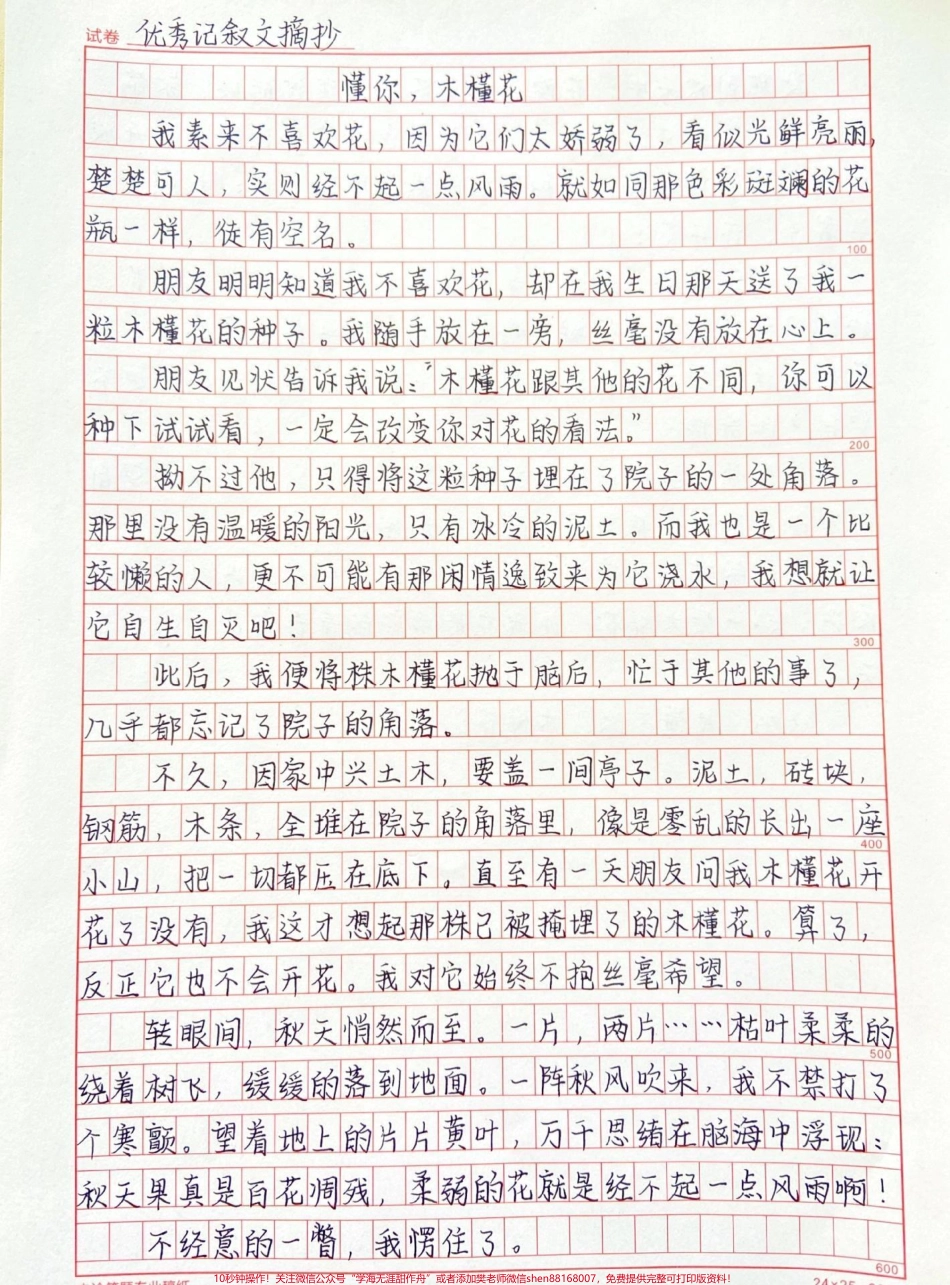 试卷 优秀记叙文摘抄
懂你，木槿花
我素来不喜欢花，因为它们太娇弱了，看似光鲜亮丽，
楚楚可人，实则经不起一点风雨。就如同那色彩斑斓的花
瓶一样，徒有空名。
100
朋友明明知道我不喜欢花，却在我生日那天送了我一
粒木槿花的种子。我随手放在一旁，丝毫没有放在心上。
朋友见状告诉我说：“木槿花跟其他的花不同，你可以
种下试试看，一定会改变你对花的看法。”
200
拗不过他，只得将这粒种子埋在了院子的一处角落。
那里没有温暖的阳光，只有冰冷的泥土。而我也是一个比
较懒的人，更不可能有那闲情逸致来为它浇水，我想就让
它自生自灭吧！
300
此后，我便将株木槿花抛于脑后，忙于其他的事了，
几乎都忘记了院子的角落。
不久，因家中兴土木，要盖一间亭子。泥土，砖块，
钢筋，木条，全堆在院子的角落里，像是零乱的长出一座
400
小山，把一切都压在底下。直至有一天朋友问我木槿花开
花了没有，我这才想起那株已被掩埋了的木槿花。算了，
反正它也不会开花。我对它始终不抱丝毫希望。
转眼间，秋天悄然而至。一片，两片……枯叶柔柔的
500
绕着树飞，缓缓的落到地面。一阵秋风吹来，我不禁打了
个寒颤。望着地上的片片黄叶，万千思绪在脑海中浮现：
秋天果真是百花凋残，柔弱的花就是经不起一点风雨啊！
不经意的一瞥，我愣住了。
600
10秒钟操作！关注微信公众号“学海无涯甜作舟”或者添加樊老师微信shen88168007，免费提供完整可打印版资料！